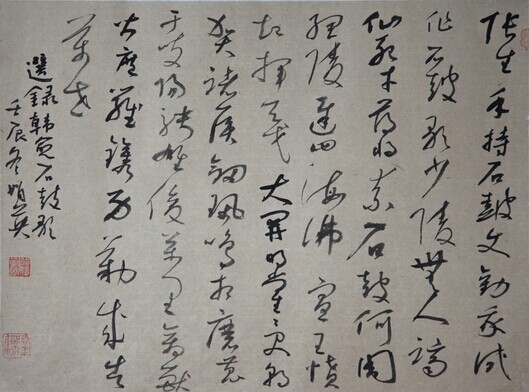 張生手持石鼓文勸我試
作石鼓歌少陵無人謫
仙死才薄將奈石鼓何周
綱陵遲四海沸宣王憤
起揮天戈大開明堂受朝
賀諸侯劍珮鳴相磨蒐
于岐陽騁雄俊萬里禽獸
皆遮羅鐫功勒成告
萬世
選錄韓愈石鼓歌
壬辰冬